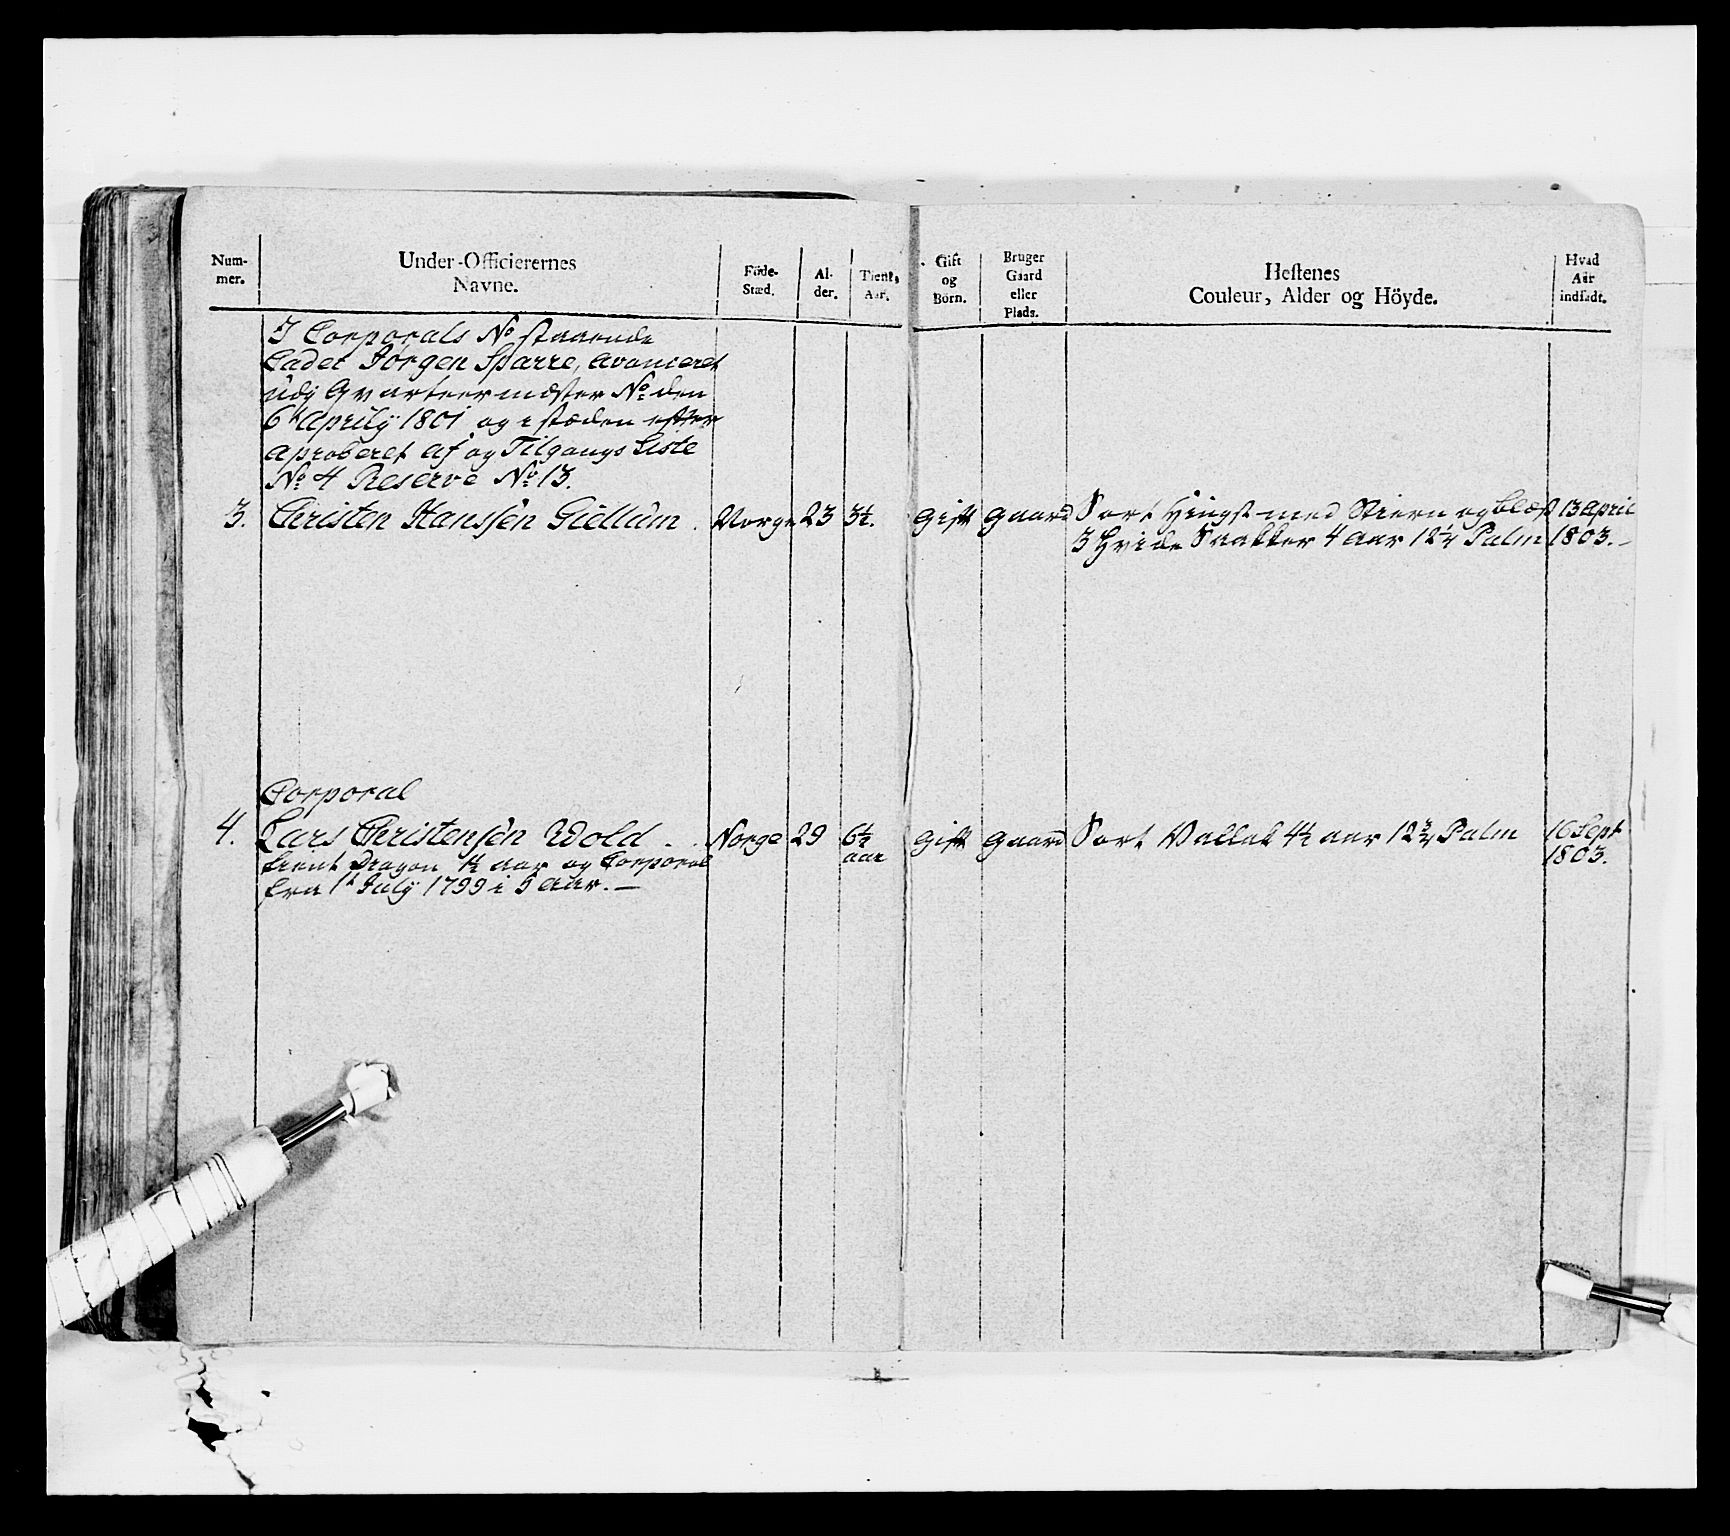 Num-
mer.
Under-Officierernes
Navne.
Föde-
Stæd.
Al-
der.
Tient,
Aar.
Gift
og
Börn.
Bruger
Gaard
eller
Plads.
Hestenes
Couleur, Alder og Höyde.
Hvad
Aar
indsadt.
I Corporals No staaende
Cadet Jörgen Sparre, avanceret
udj Qvarteermæster No den
6t Aprily 1801 og i stæden efter
aproberet Af og Tilgangs Liste
No 4 Reserve No 13.
3. Christen Hanssen Giellum. Norge 23 3½. Gift Gaard Sort Hingst med Stiern og blæs 13 April
3 Hvide Saakker 4 aar 12¼ Palm 1803.-
Corporal
4. Lars Christensen Wold . . Norge 29 6½ Gift Gaard Sort Vallak 4½ aar 12¾ Palm 16 Sept
aar 1803.
tient Dragon 1½ aar og Corporal
fra 1t July 1799 i 5 aar. —